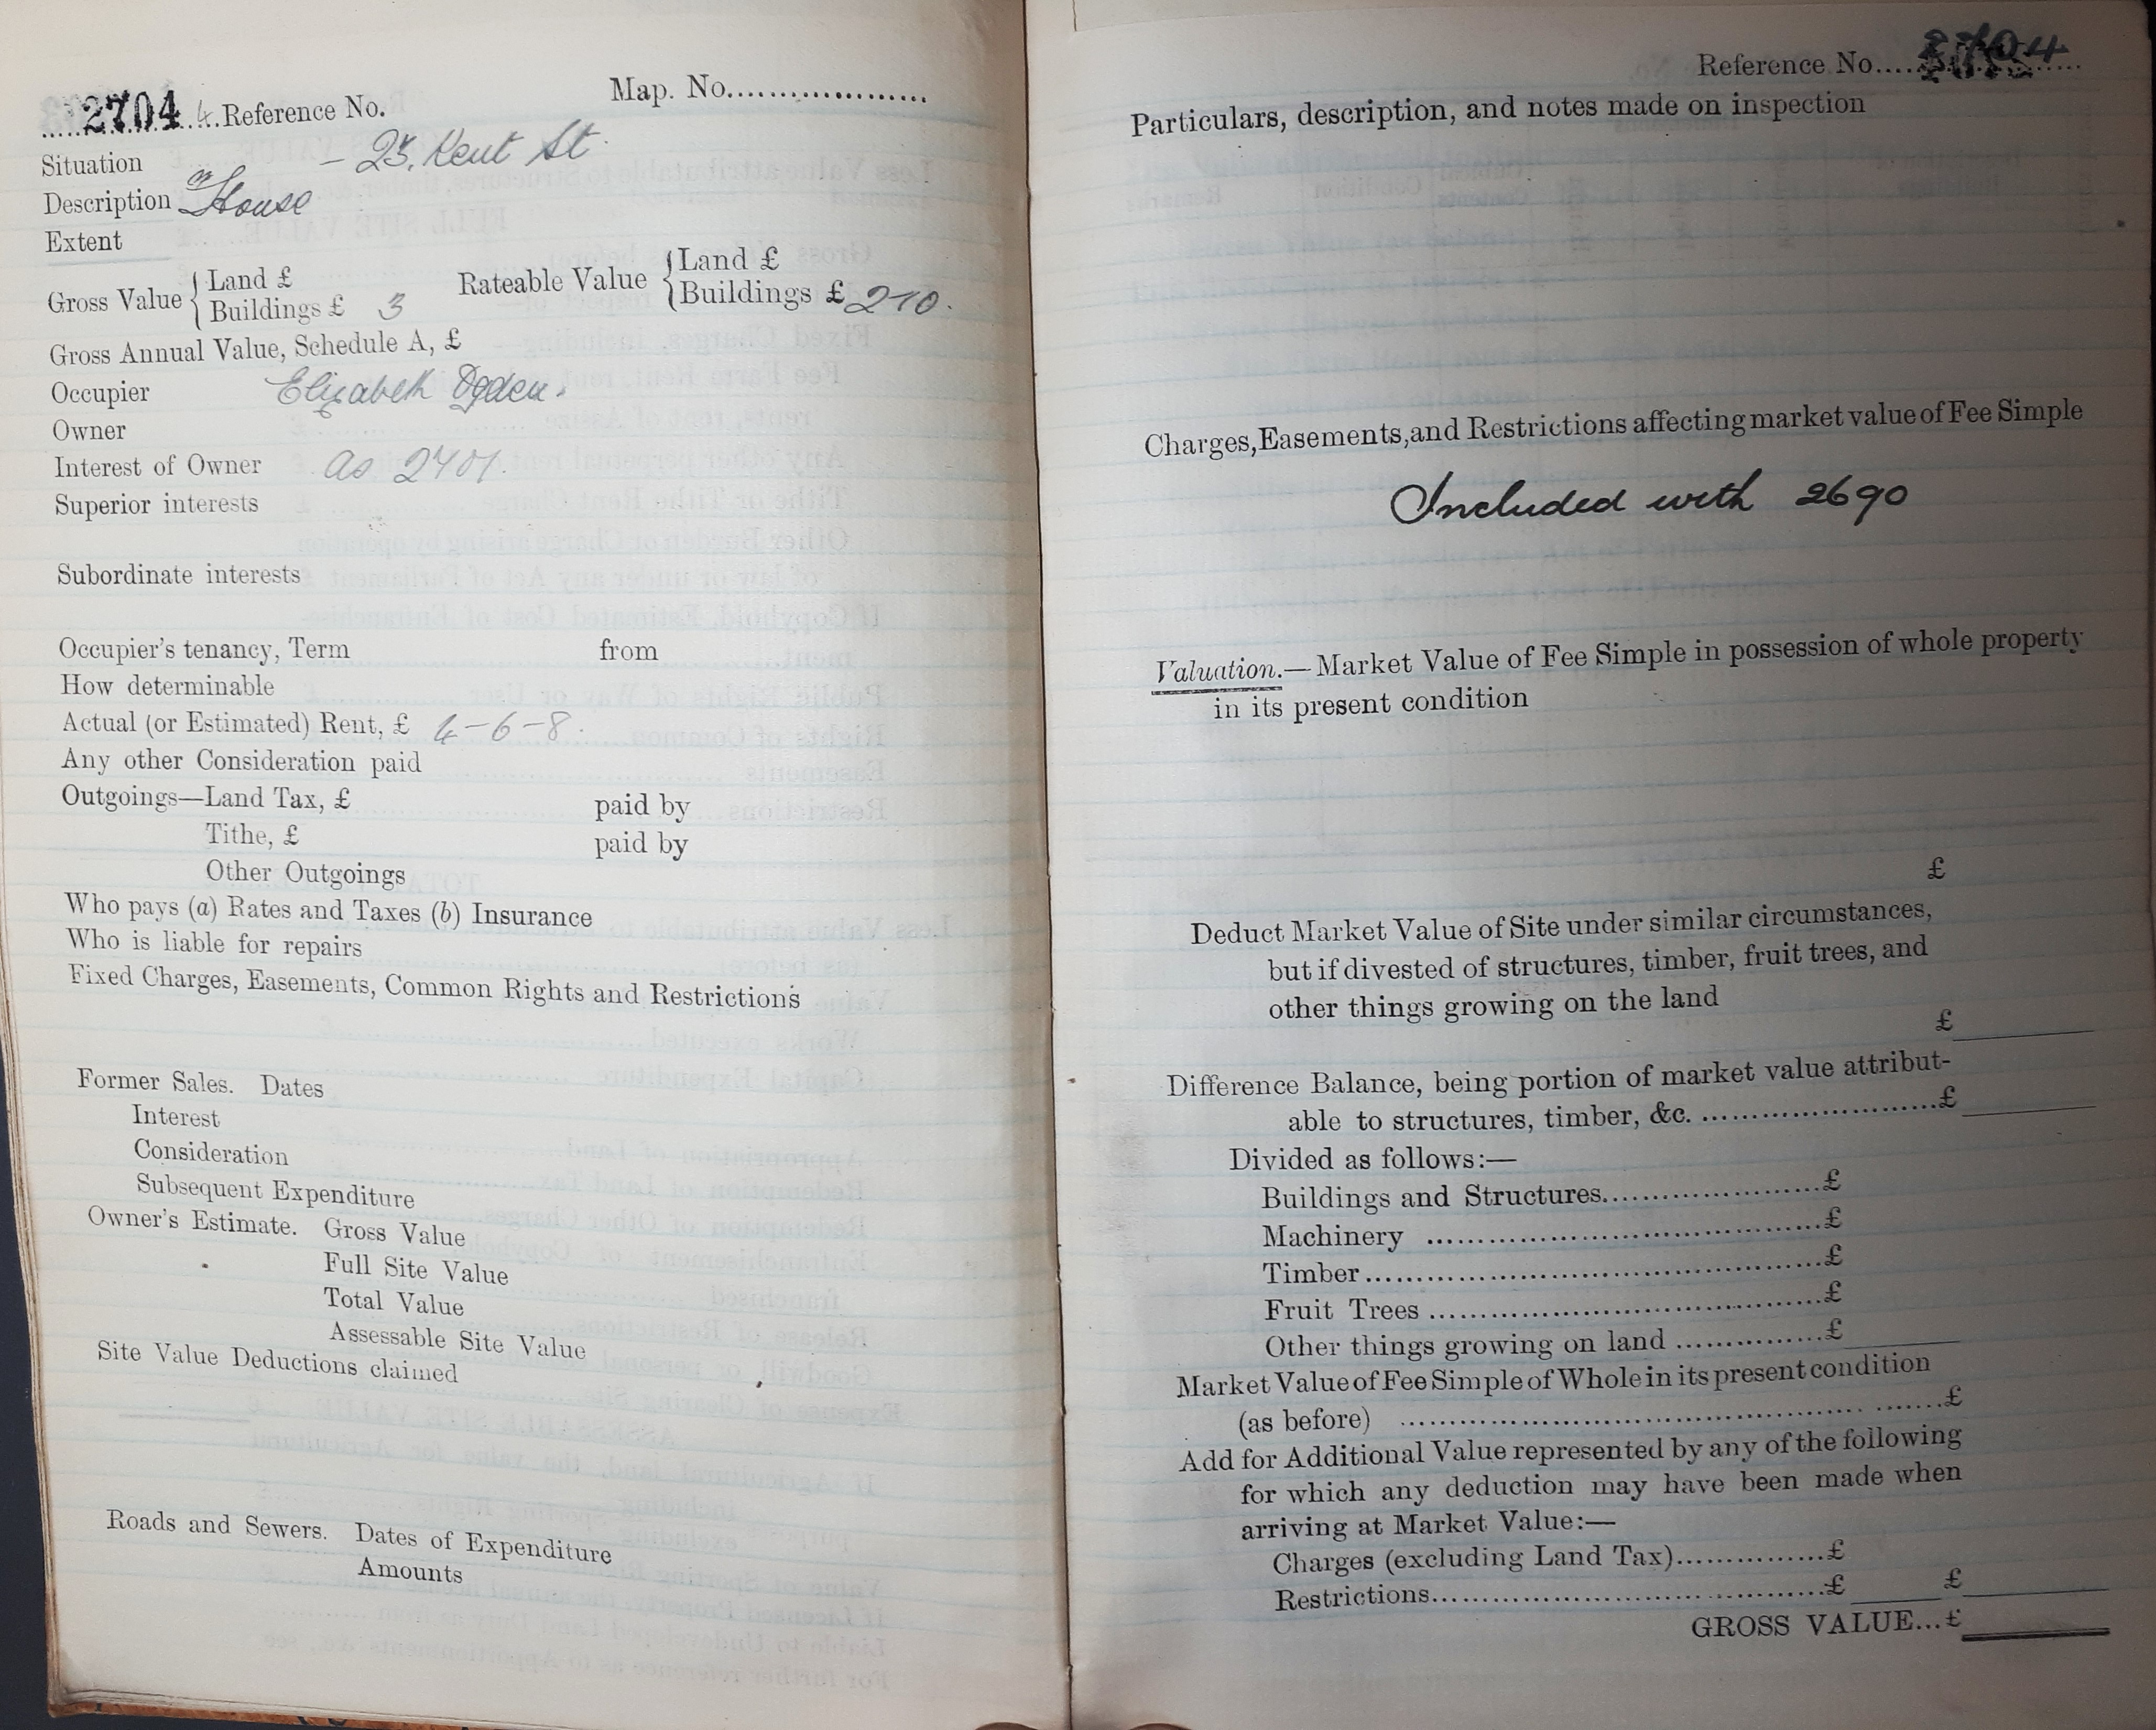 2704 4 Reference No. Map. No
Situation - 25, Kent St.
Description House
Extent
Gross Value { Land £ Rateable Value { Land £
Buildings £ 3 Buildings £ 2-10.
Gross Annual Value, Schedule A, £
Occupier Elizabeth Ogden.
Owner
Interest of Owner as 2701.
Superior interests
Subordinate interests
Occupier's tenancy, Term from
How determinable
Actual (or Estimated) Rent, £ 4-6-8.
Any other Consideration paid
Outgoings—Land Tax, £ paid by
Tithe, £ paid by
Other Outgoings
Who pays (a) Rates and Taxes (b) Insurance
Who is liable for repairs
Fixed Charges, Easements, Common Rights and Restrictions
Former Sales. Dates
Interest
Consideration
Subsequent Expenditure
Owner's Estimate. Gross Value
Full Site Value
Total Value
Assessable Site Value
Site Value Deductions claimed
Roads and Sewers. Dates of Expenditure
Amounts
Reference No. 2704
Particulars, description, and notes made on inspection
Charges, Easements, and Restrictions affecting market value of Fee Simple
Included with 2690
Valuation.—Market Value of Fee Simple in possession of whole property
in its present condition
£
Deduct Market Value of Site under similar circumstances,
but if divested of structures, timber, fruit trees, and
other things growing on the land
£
Difference Balance, being portion of market value attribut-
able to structures, timber, &c. £
Divided as follows:—
Buildings and Structures £
Machinery £
Timber £
Fruit Trees £
Other things growing on land £
Market Value of Fee Simple of Whole in its present condition
(as before) £
Add for Additional Value represented by any of the following
for which any deduction may have been made when
arriving at Market Value:—
Charges (excluding Land Tax) £
Restrictions £ £
GROSS VALUE... £